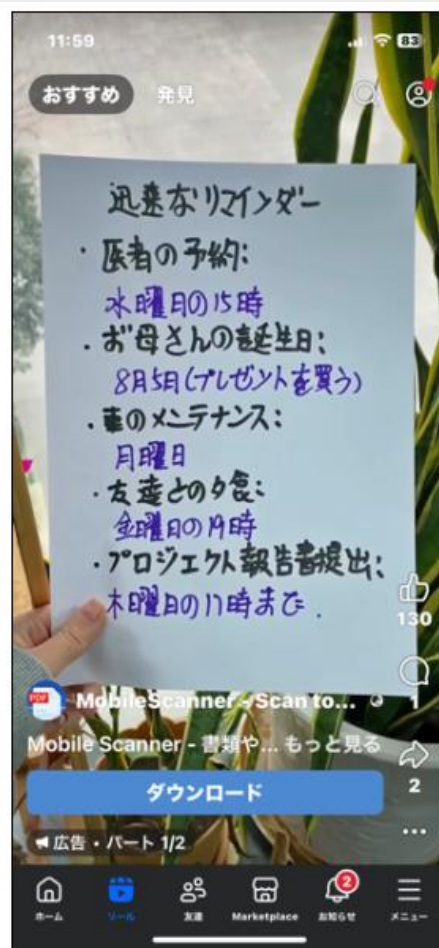 11:59
83
おすすめ 発見
迅速なリマインダー
・医者の予約:
水曜日の15時
・お母さんの誕生日:
8月5日(プレゼントを買う)
・車のメンテナンス:
月曜日
・友達との夕食:
金曜日の19時
・プロジェクト報告書提出:
木曜日の11時まで.
130
PDF
MobileScanner - Scan to...
1
Mobile Scanner - 書類や... もっと見る
2
ダウンロード
広告・パート 1/2
2
ホーム リール 友達 Marketplace お知らせ メニュー